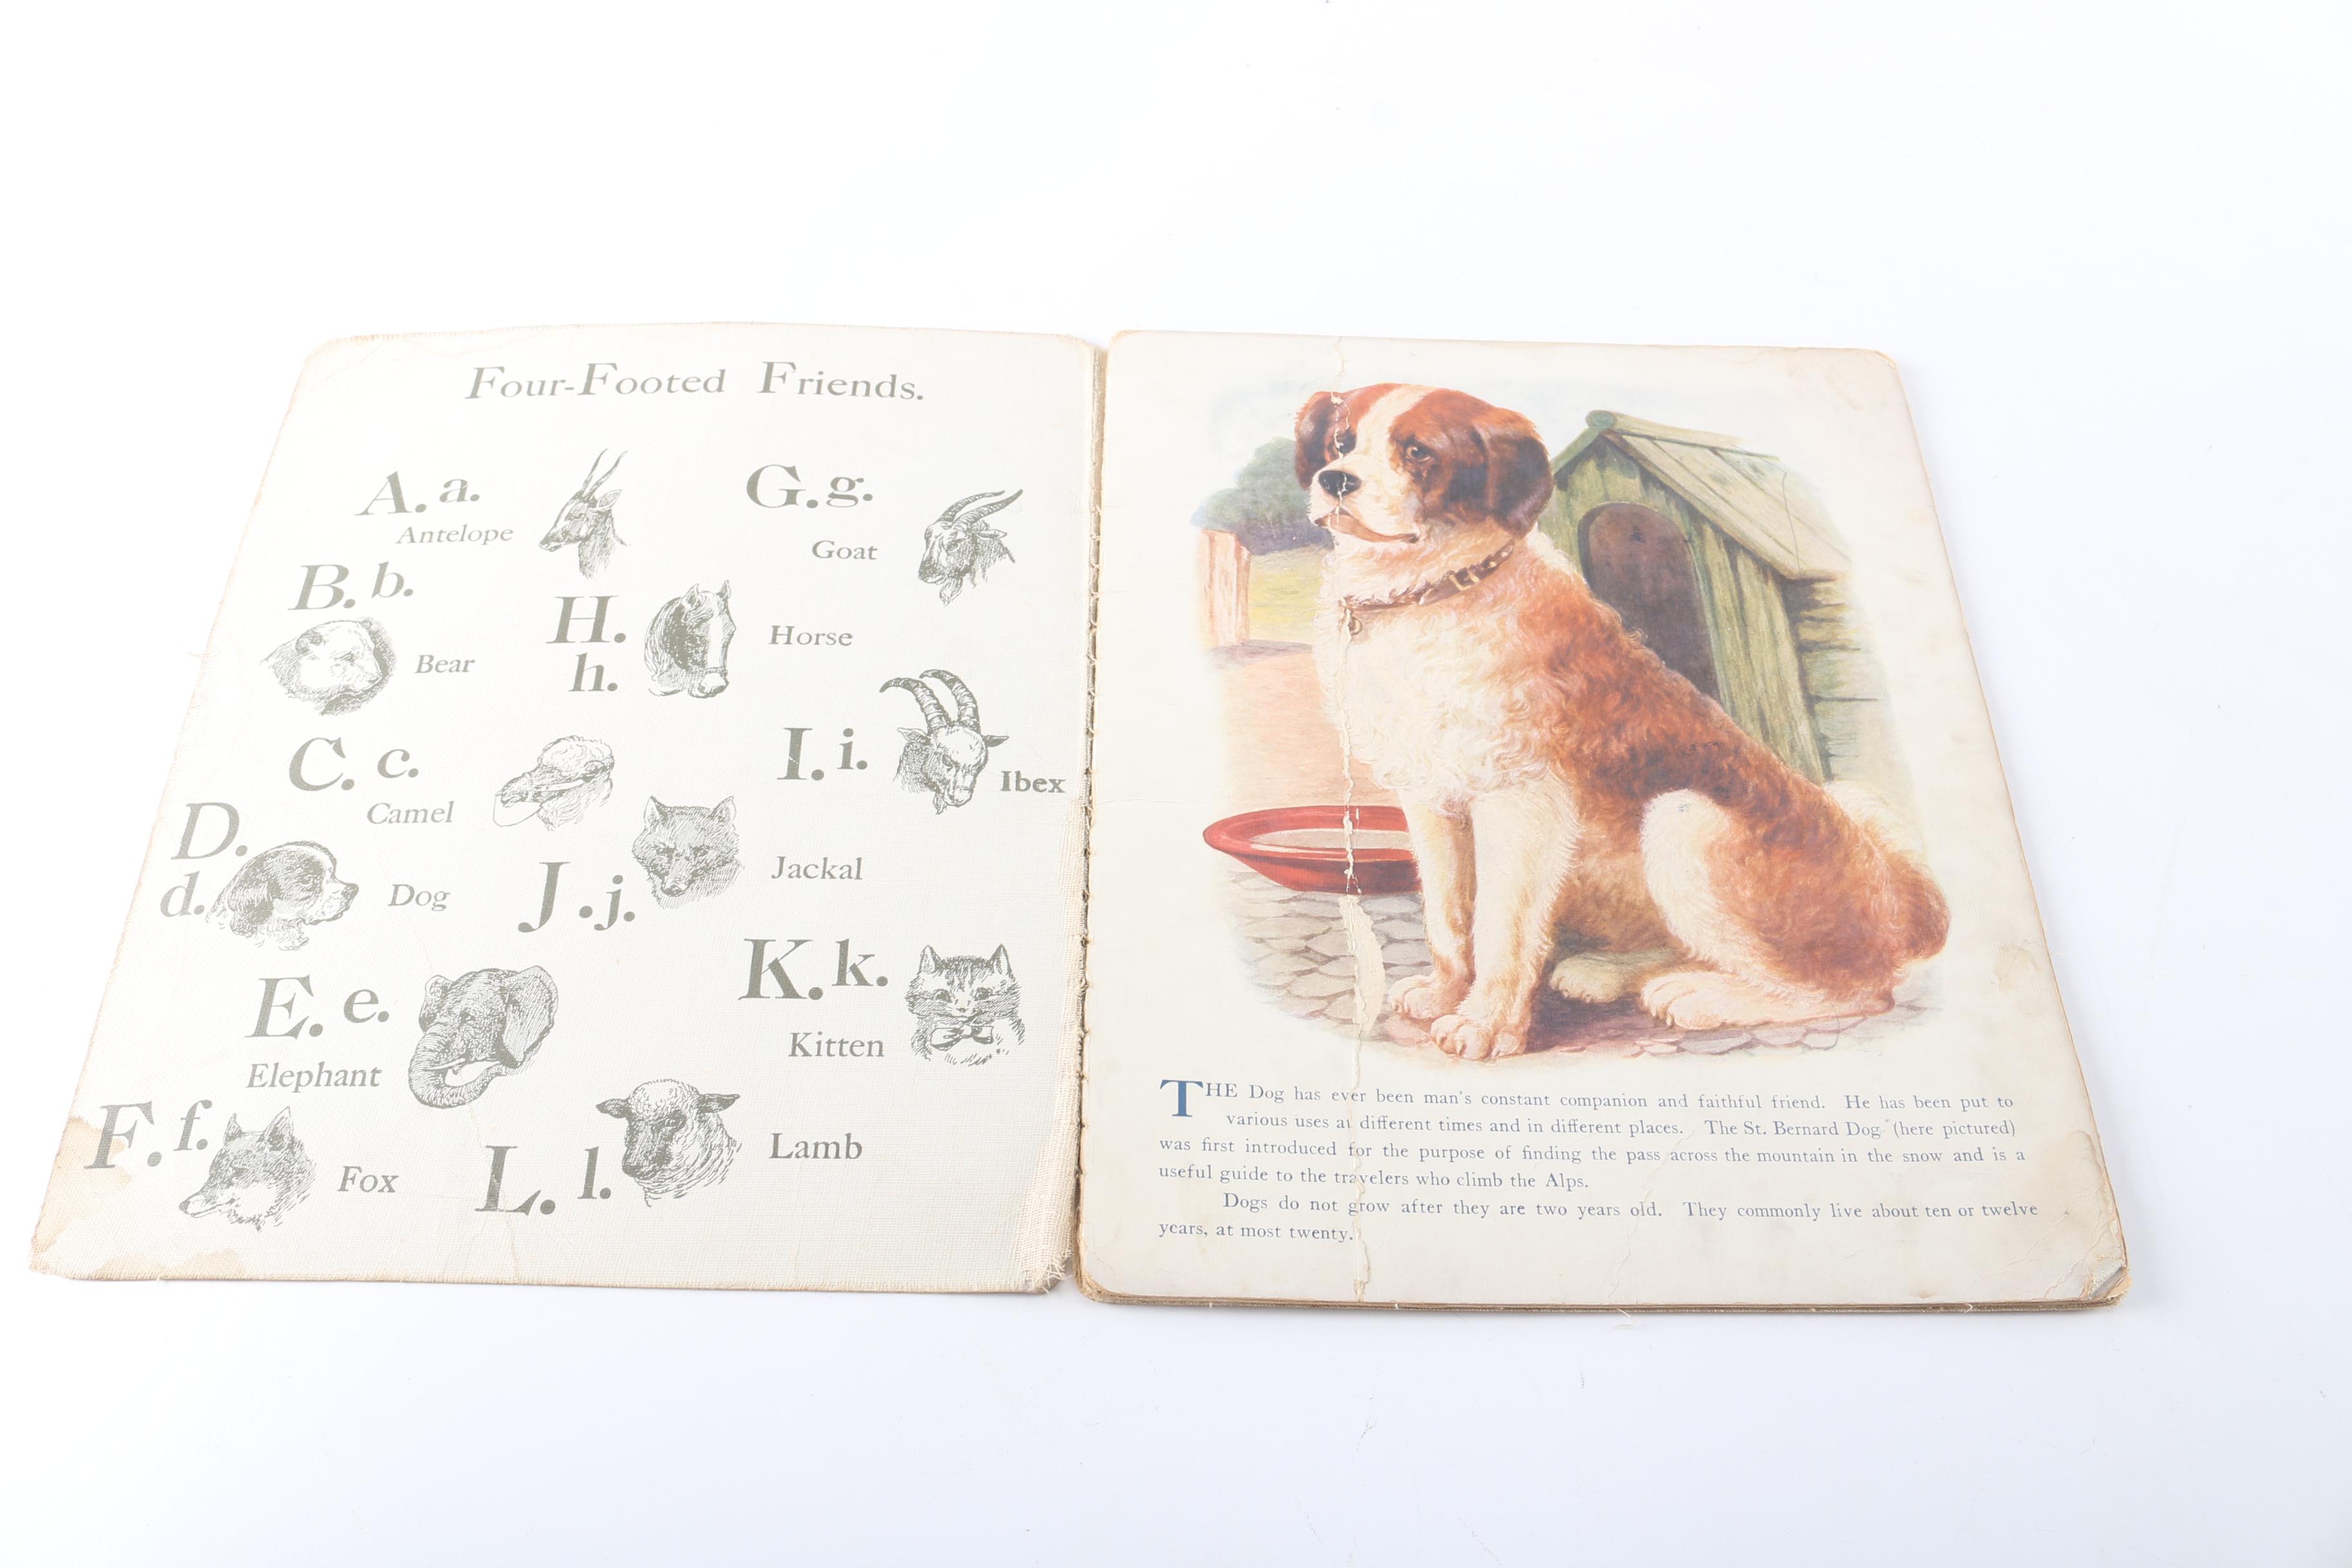 Four-Footed Friends.
A. a.
Antelope
B. b.
Bear
C. c.
Camel
D.
d.
Dog
E. e.
Elephant
F. f.
Fox
G. g.
Goat
H.
h.
Horse
I. i.
Ibex
J. j.
Jackal
K. k.
Kitten
L. l.
Lamb
THE Dog has ever been man's constant companion and faithful friend. He has been put to
various uses at different times and in different places. The St. Bernard Dog (here pictured)
was first introduced for the purpose of finding the pass across the mountain in the snow and is a
useful guide to the travelers who climb the Alps.
Dogs do not grow after they are two years old. They commonly live about ten or twelve
years, at most twenty.